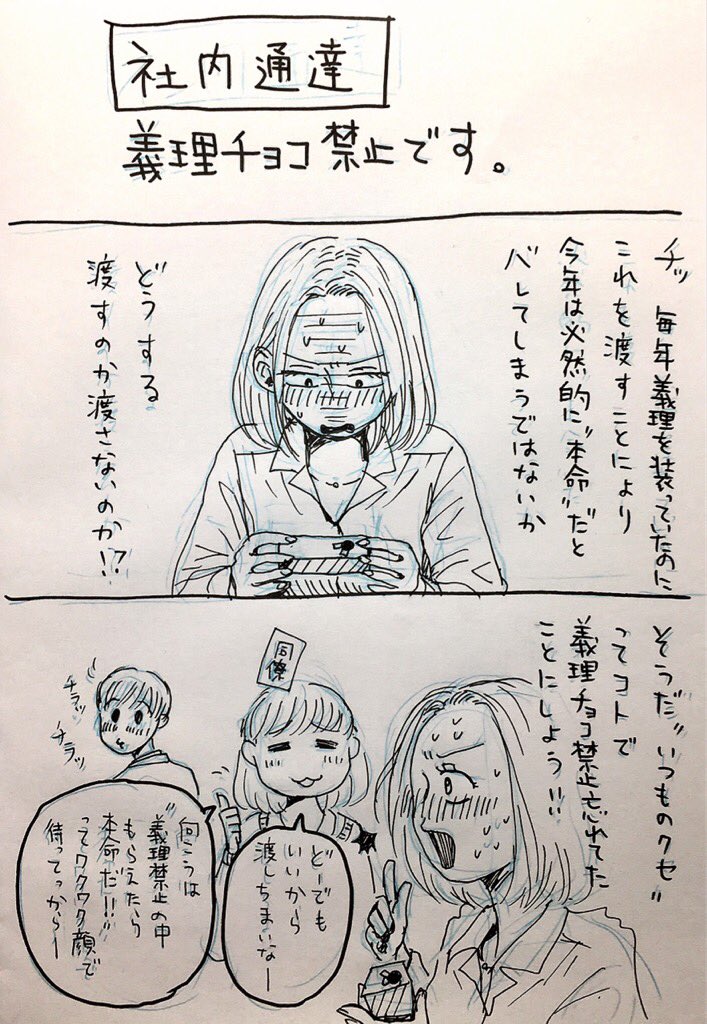 社内通達
義理チョコ禁止です。
チッ
毎年義理を装っていたのに
これを渡すことにより
今年は必然的に"本命"だと
バレてしまうではないか
どうする
渡すのか渡さないのか!?
そうだ"いつものクセ"
ってコトで
義理チョコ禁止忘れてた
ことにしよう!!
同僚
どーでも
いいから
渡しちまいなー
チラッ
チラッ
向こうは
"義理禁止の中
もらえたら
本命だ!!"
ってワクワク顔で
待ってっからー